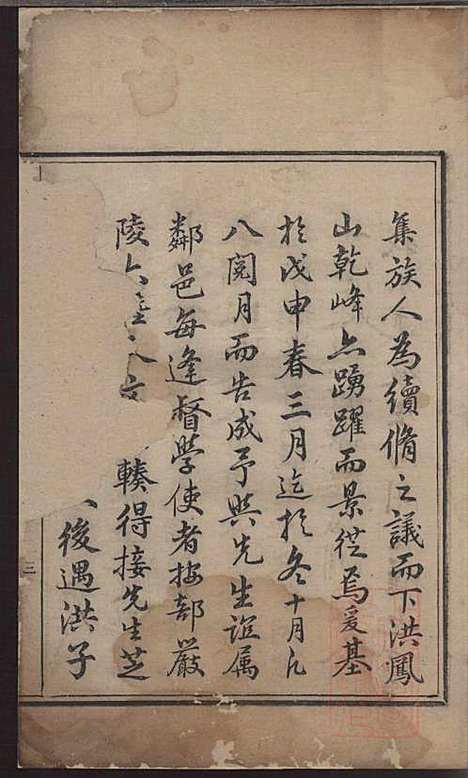 集族人為續脩之議而下洪鳳
山乾峰亦踴躍而景從焉爰基
於戊申春三月迄於冬十月凡
八閱月而告成予與先生誼属
鄰邑每逢督學使者按部嚴
陵六 之 輳得接先生芝
後遇洪子
三